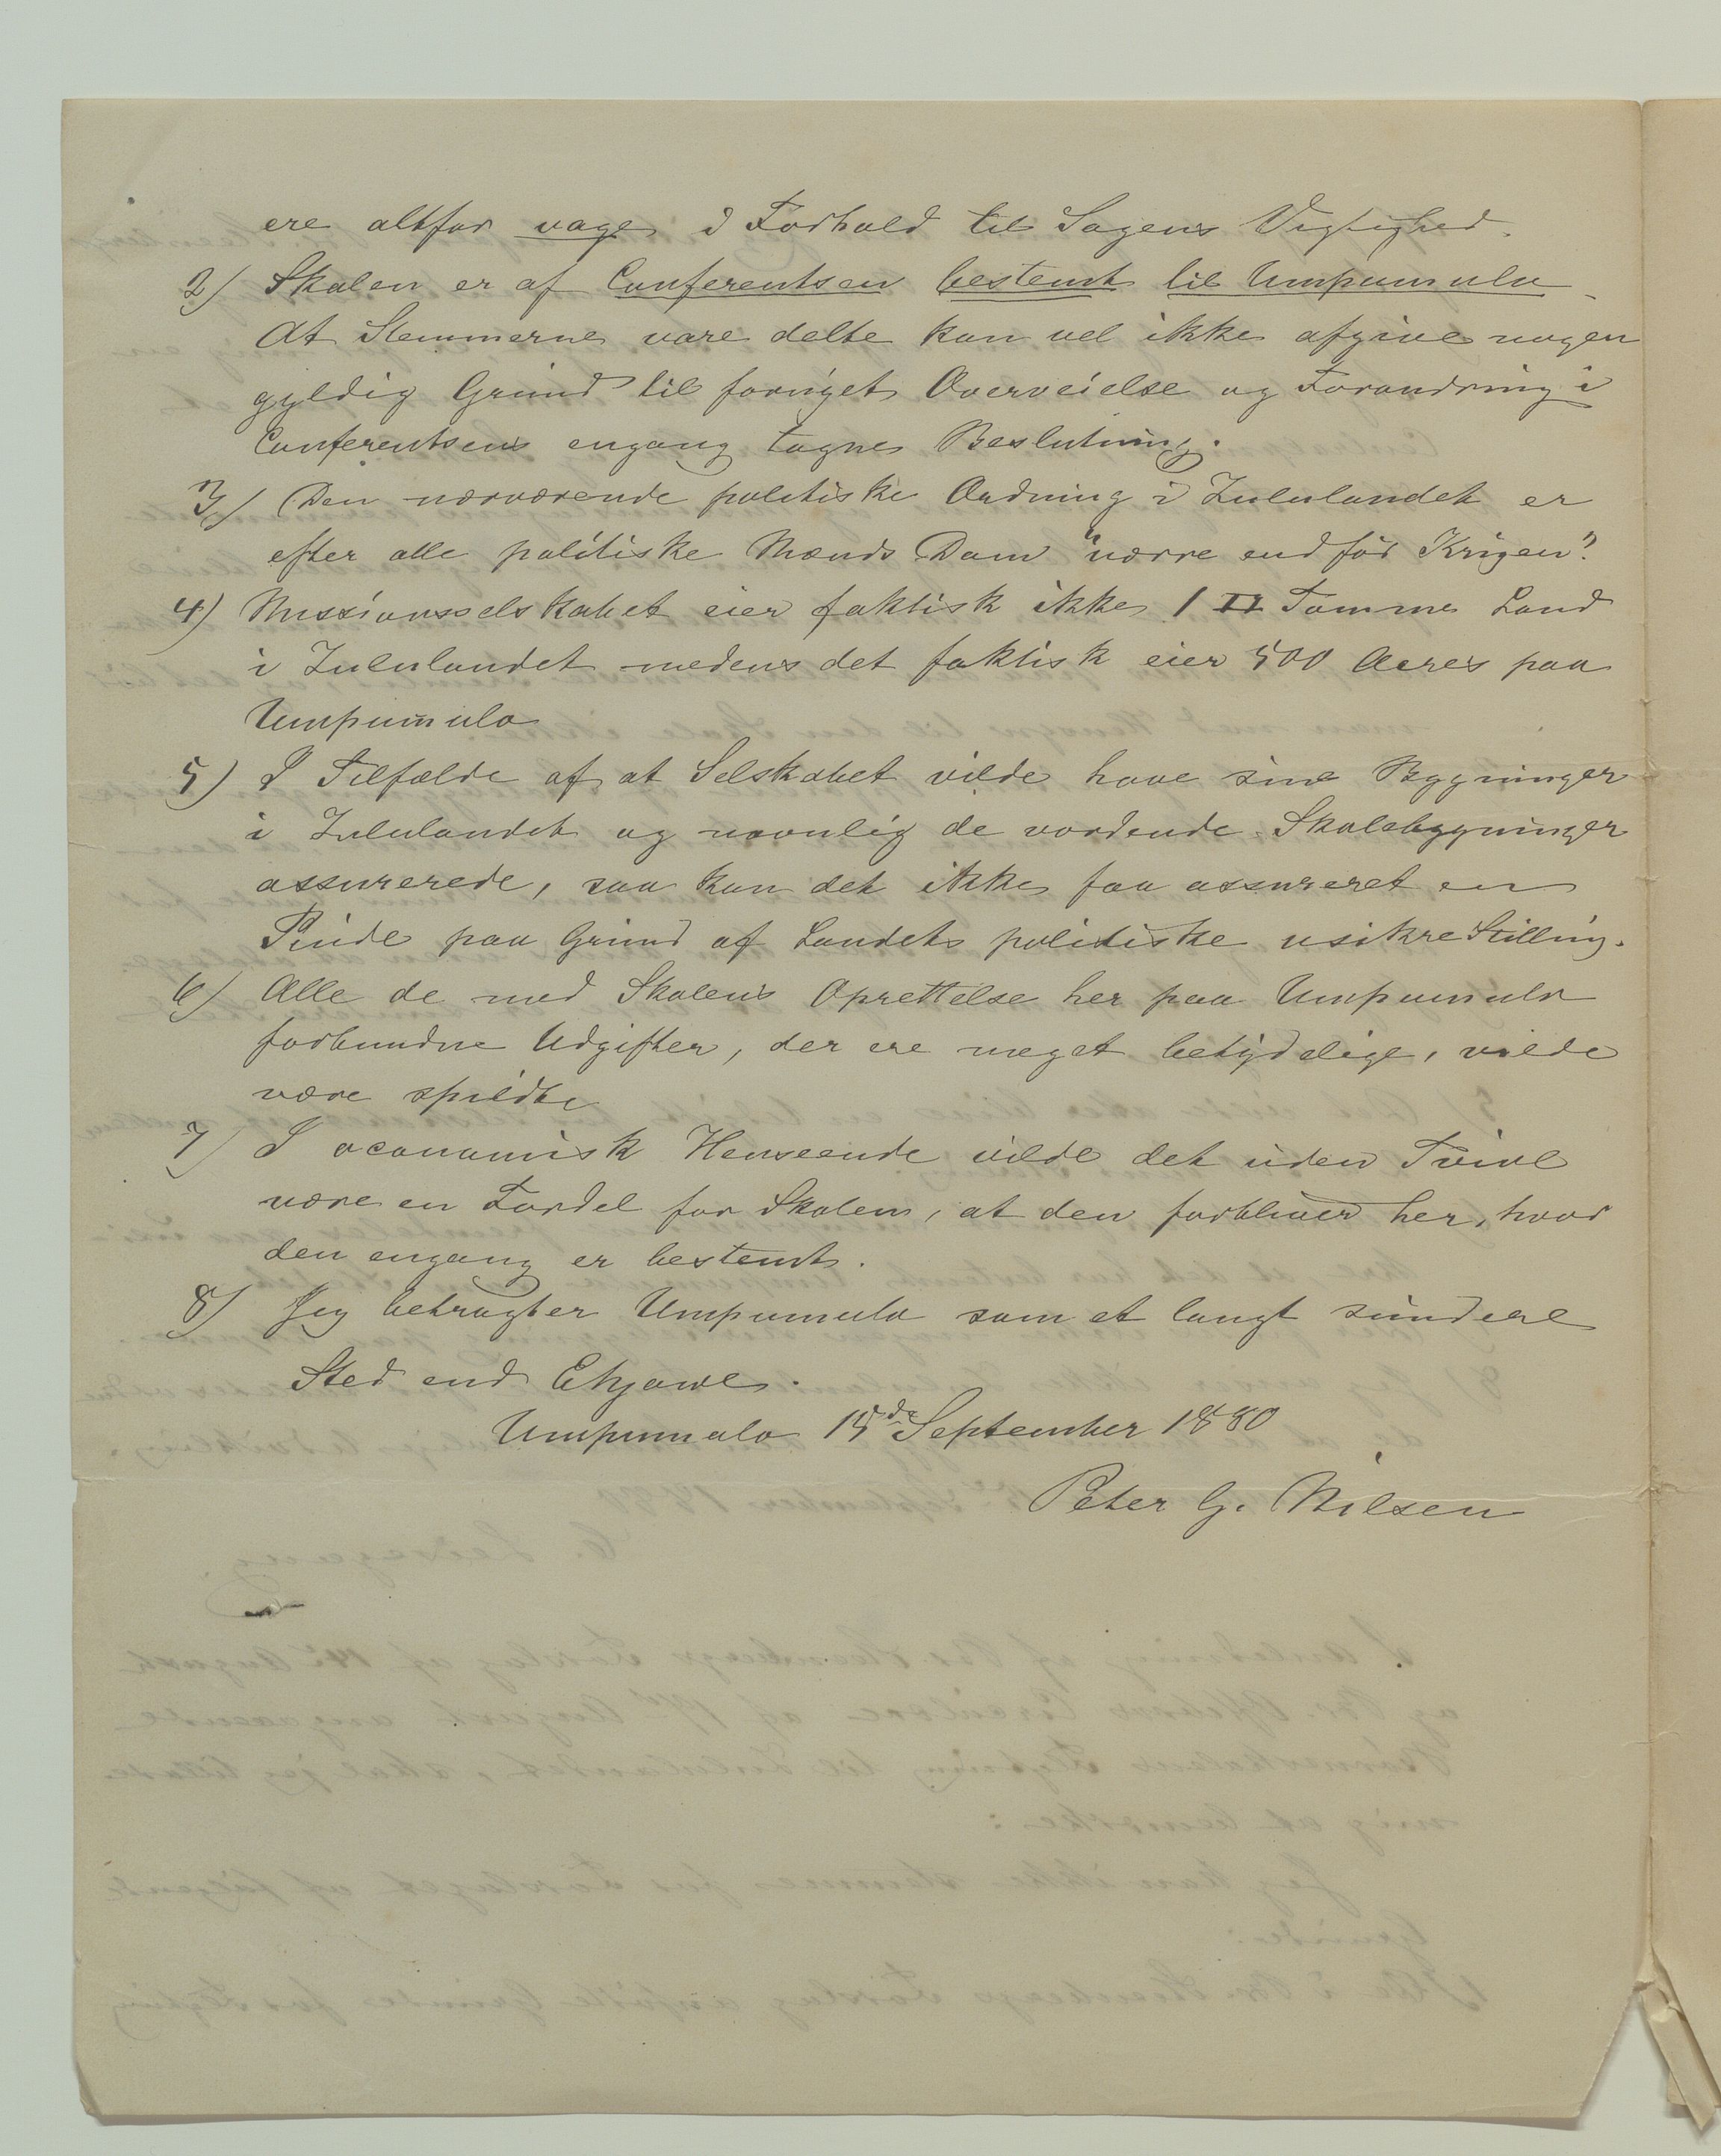 ere altfor vage i Forhold til Sagens Vigtighed.
2) Skolen er af Conferentsen bestemt til Umpumulo
At Stemmerne vare delte kan vel ikke afgive nogen
gyldig Grund til fornyet Overveielse og Forandring i
Conferentsens engang tagne Beslutning.
3) Den nærværende politiske Ordning i Zululandet er
efter alle politiske Mænds Dom "værre end før Krigen".
4) Missionsselskabet eier faktisk ikke 1 □ Tomme Land
i Zululandet medens det faktisk eier 500 Acres paa
Umpumulo
5) I Tilfælde af at Selskabet vilde have sine Bygninger
i Zululandet og navnlig de vordende Skolebygninger
assurerede, saa kan det ikke faa assureret en
Pinde paa Grund af Landets politiske usikre Stilling.
6) Alle de med Skolens Oprettelse her paa Umpumulo
forbundne Udgifter, der ere meget betydelige, vilde
være spildte
7) I oconomisk Henseende vilde det uden Tvivl
være en Fordel for Skolen, at den forbliver her, hvor
den engang er bestemt.
8) Jeg betragter Umpumulo som et langt sundere
Sted end Ehjowe.
Umpumulo 15de September 1880
Peter G. Nilsen